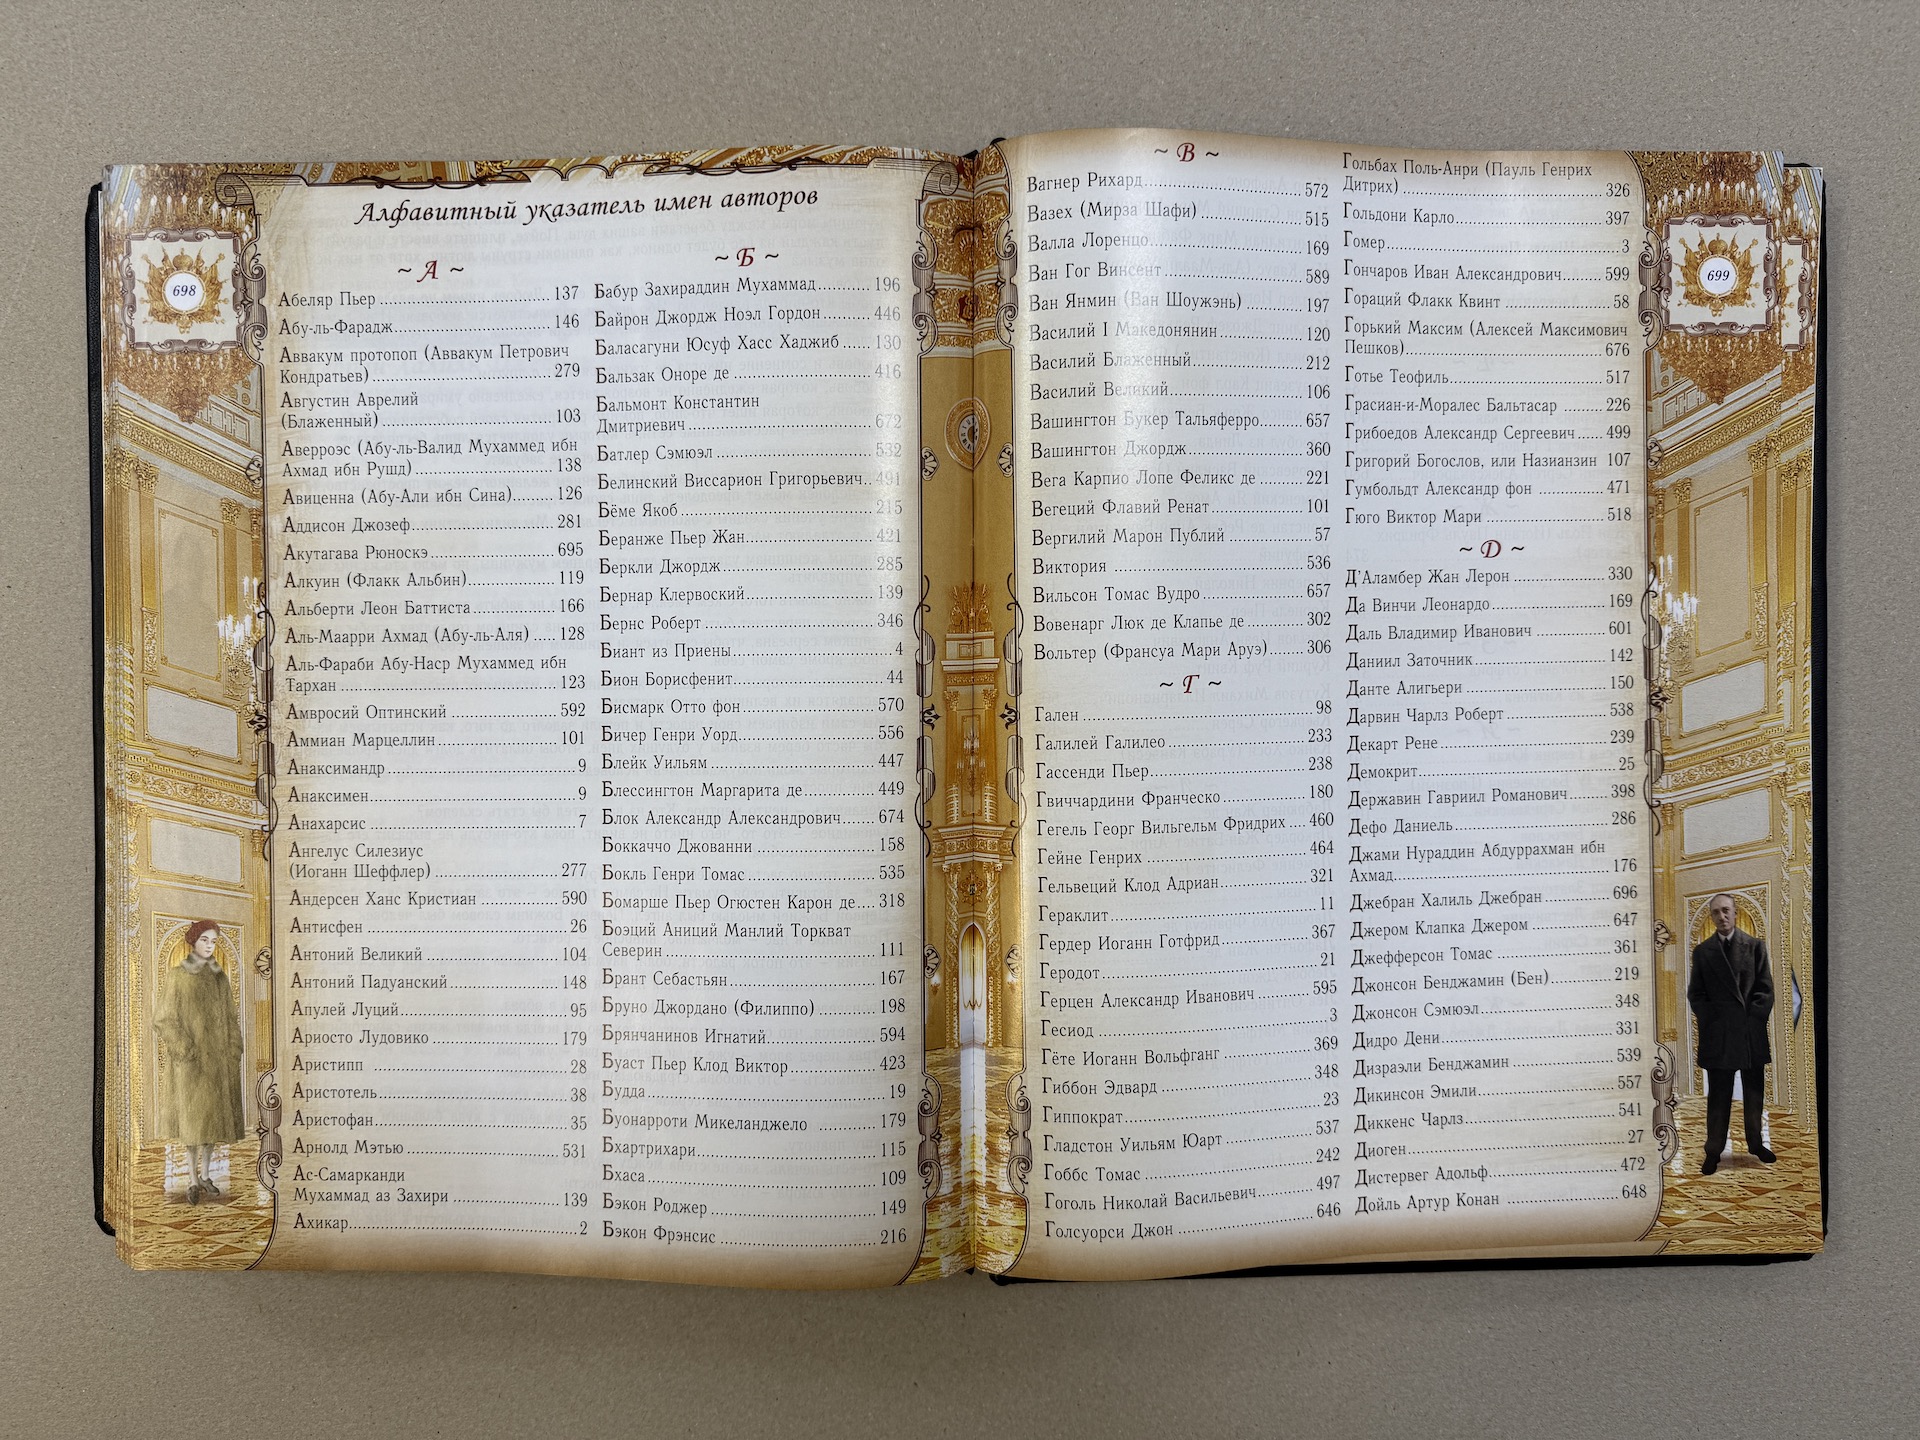 698
Алфавитный указатель имен авторов
~ А ~
Абеляр Пьер ............ 137
Абу-ль-Фарадж ............ 146
Аввакум протопоп (Аввакум Петрович
Кондратьев) ............ 279
Августин Аврелий
(Блаженный) ............ 103
Аверроэс (Абу-ль-Валид Мухаммед ибн
Ахмад ибн Рушд) ............ 138
Авиценна (Абу-Али ибн Сина) ......... 126
Аддисон Джозеф ............ 281
Акутагава Рюноскэ ............ 695
Алкуин (Флакк Альбин) ............ 119
Альберти Леон Баттиста ............ 166
Аль-Маарри Ахмад (Абу-ль-Аля) .... 128
Аль-Фараби Абу-Наср Мухаммед ибн
Тархан ............ 123
Амвросий Оптинский ............ 592
Аммиан Марцеллин ............ 101
Анаксимандр ............ 9
Анаксимен ............ 9
Анахарсис ............ 7
Ангелус Силезиус
(Иоганн Шеффлер) ............ 277
Андерсен Ханс Кристиан ............ 590
Антисфен ............ 26
Антоний Великий ............ 104
Антоний Падуанский ............ 148
Апулей Луций ............ 95
Ариосто Лудовико ............ 179
Аристипп ............ 28
Аристотель ............ 38
Аристофан ............ 35
Арнолд Мэтью ............ 531
Ас-Самарканди
Мухаммад аз Захири ............ 139
Ахикар ............ 2
~ Б ~
Бабур Захираддин Мухаммад ......... 196
Байрон Джордж Ноэл Гордон ......... 446
Баласагуни Юсуф Хасс Хаджиб ...... 130
Бальзак Оноре де ............ 416
Бальмонт Константин
Дмитриевич ............ 672
Батлер Сэмюэл ............ 532
Белинский Виссарион Григорьевич .. 491
Бёме Якоб ............ 215
Беранже Пьер Жан ............ 421
Беркли Джордж ............ 285
Бернар Клервоский ............ 139
Бернс Роберт ............ 346
Биант из Приены ............ 4
Бион Борисфенит ............ 44
Бисмарк Отто фон ............ 570
Бичер Генри Уорд ............ 556
Блейк Уильям ............ 447
Блессингтон Маргарита де ............ 449
Блок Александр Александрович ...... 674
Боккаччо Джованни ............ 158
Бокль Генри Томас ............ 535
Бомарше Пьер Огюстен Карон де .... 318
Боэций Аниций Манлий Торкват
Северин ............ 111
Брант Себастьян ............ 167
Бруно Джордано (Филиппо) ............ 198
Брянчанинов Игнатий ............ 594
Буаст Пьер Клод Виктор ............ 423
Будда ............ 19
Буонарроти Микеланджело ............ 179
Бхартрихари ............ 115
Бхаса ............ 109
Бэкон Роджер ............ 149
Бэкон Фрэнсис ............ 216
~ В ~
Вагнер Рихард ............ 572
Вазех (Мирза Шафи) ............ 515
Валла Лоренцо ............ 169
Ван Гог Винсент ............ 589
Ван Янмин (Ван Шоужэнь) ............ 197
Василий I Македонянин ............ 120
Василий Блаженный ............ 212
Василий Великий ............ 106
Вашингтон Букер Тальяферро ......... 657
Вашингтон Джордж ............ 360
Вега Карпио Лопе Феликс де ......... 221
Вегеций Флавий Ренат ............ 101
Вергилий Марон Публий ............ 57
Виктория ............ 536
Вильсон Томас Вудро ............ 657
Вовенарг Люк де Клапье де ............ 302
Вольтер (Франсуа Мари Аруэ) ......... 306
~ Г ~
Гален ............ 98
Галилей Галилео ............ 233
Гассенди Пьер ............ 238
Гвиччардини Франческо ............ 180
Гегель Георг Вильгельм Фридрих .... 460
Гейне Генрих ............ 464
Гельвеций Клод Адриан ............ 321
Гераклит ............ 11
Гердер Иоганн Готфрид ............ 367
Геродот ............ 21
Герцен Александр Иванович ............ 595
Гесиод ............ 3
Гёте Иоганн Вольфганг ............ 369
Гиббон Эдвард ............ 348
Гиппократ ............ 23
Гладстон Уильям Юарт ............ 537
Гоббс Томас ............ 242
Гоголь Николай Васильевич ............ 497
Голсуорси Джон ............ 646
Гольбах Поль-Анри (Пауль Генрих
Дитрих) ............ 326
Гольдони Карло ............ 397
Гомер ............ 3
Гончаров Иван Александрович ......... 599
Гораций Флакк Квинт ............ 58
Горький Максим (Алексей Максимович
Пешков) ............ 676
Готье Теофиль ............ 517
Грасиан-и-Моралес Бальтасар ........ 226
Грибоедов Александр Сергеевич ...... 499
Григорий Богослов, или Назианзин 107
Гумбольдт Александр фон ............ 471
Гюго Виктор Мари ............ 518
~ D ~
Д'Аламбер Жан Лерон ............ 330
Да Винчи Леонардо ............ 169
Даль Владимир Иванович ............ 601
Даниил Заточник ............ 142
Данте Алигьери ............ 150
Дарвин Чарлз Роберт ............ 538
Декарт Рене ............ 239
Демокрит ............ 25
Державин Гавриил Романович ......... 398
Дефо Даниель ............ 286
Джами Нураддин Абдуррахман ибн
Ахмад ............ 176
Джебран Халиль Джебран ............ 696
Джером Клапка Джером ............ 647
Джефферсон Томас ............ 361
Джонсон Бенджамин (Бен) ............ 219
Джонсон Сэмюэл ............ 348
Дидро Дени ............ 331
Дизраэли Бенджамин ............ 539
Дикинсон Эмили ............ 557
Диккенс Чарлз ............ 541
Диоген ............ 27
Дистервег Адольф ............ 472
Дойль Артур Конан ............ 648
699